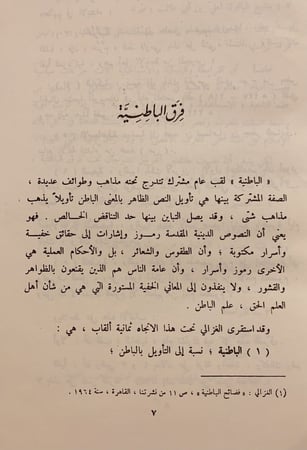 فِرَق الباطِنيَّة
« الباطنية » لقب عام مشترك تندرج تحته مذاهب وطوائف عديدة ،
الصفة المشتركة بينها هي تأويل النص الظاهر بالمعنى الباطن تأويلاً يذهب
مذاهب شتى ، وقد يصل التباين بينها حد التناقض الخالص . فهو
يعني أن النصوص الدينية المقدسة رموز وإشارات إلى حقائق خفية
وأسرار مكتوبة ؛ وأن الطقوس والشعائر ، بل والأحكام العملية هي
الأخرى رموز وأسرار ، وأن عامة الناس هم الذين يقنعون بالظواهر
والقشور ، ولا ينفذون إلى المعاني الخفية المستورة التي هي من شأن أهل
العلم الحق ، علم الباطن .
وقد استقرى الغزالي تحت هذا الاتجاه ثمانية ألقاب ، هي :
( ١ ) الباطنية ؛ نسبة إلى التأويل بالباطن ؛
(١) الغزالي : « فضائح الباطنية » ، ص ١١ من نشرتنا ، القاهرة ، سنة ١٩٦٤ .
٧